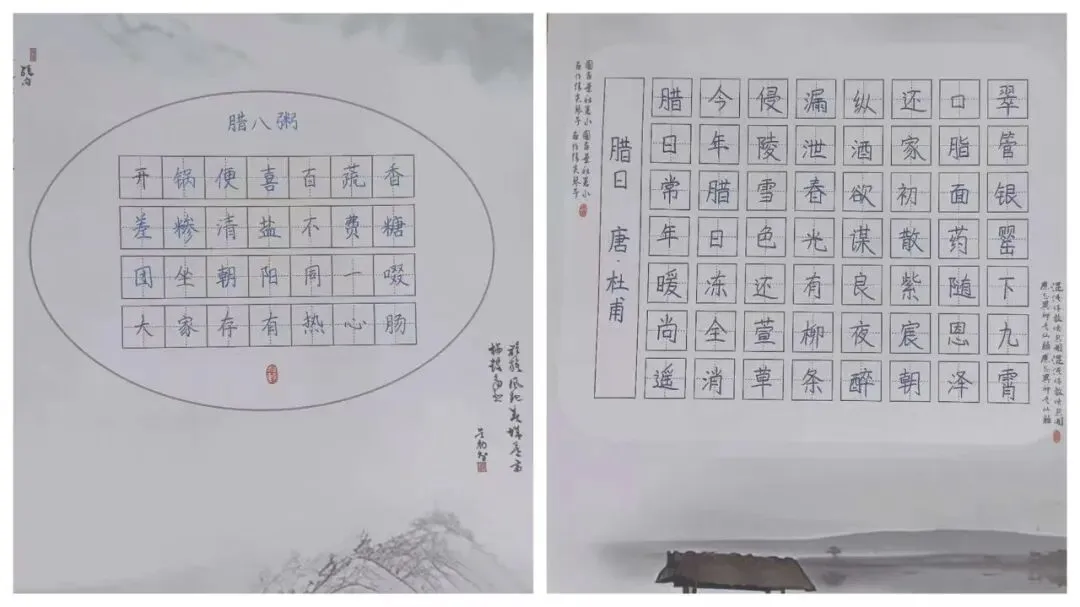 腊八粥
开锅便喜百蔬香
差糁清盐不费糖
团坐朝阳同一啜
大家存有热心肠
腊日 唐·杜甫
腊日常年暖尚遥
今年腊日冻全消
侵陵雪色还萱草
漏泄春光有柳条
纵酒欲谋良夜醉
还家初散紫宸朝
口脂面药随恩泽
翠管银罂下九霄